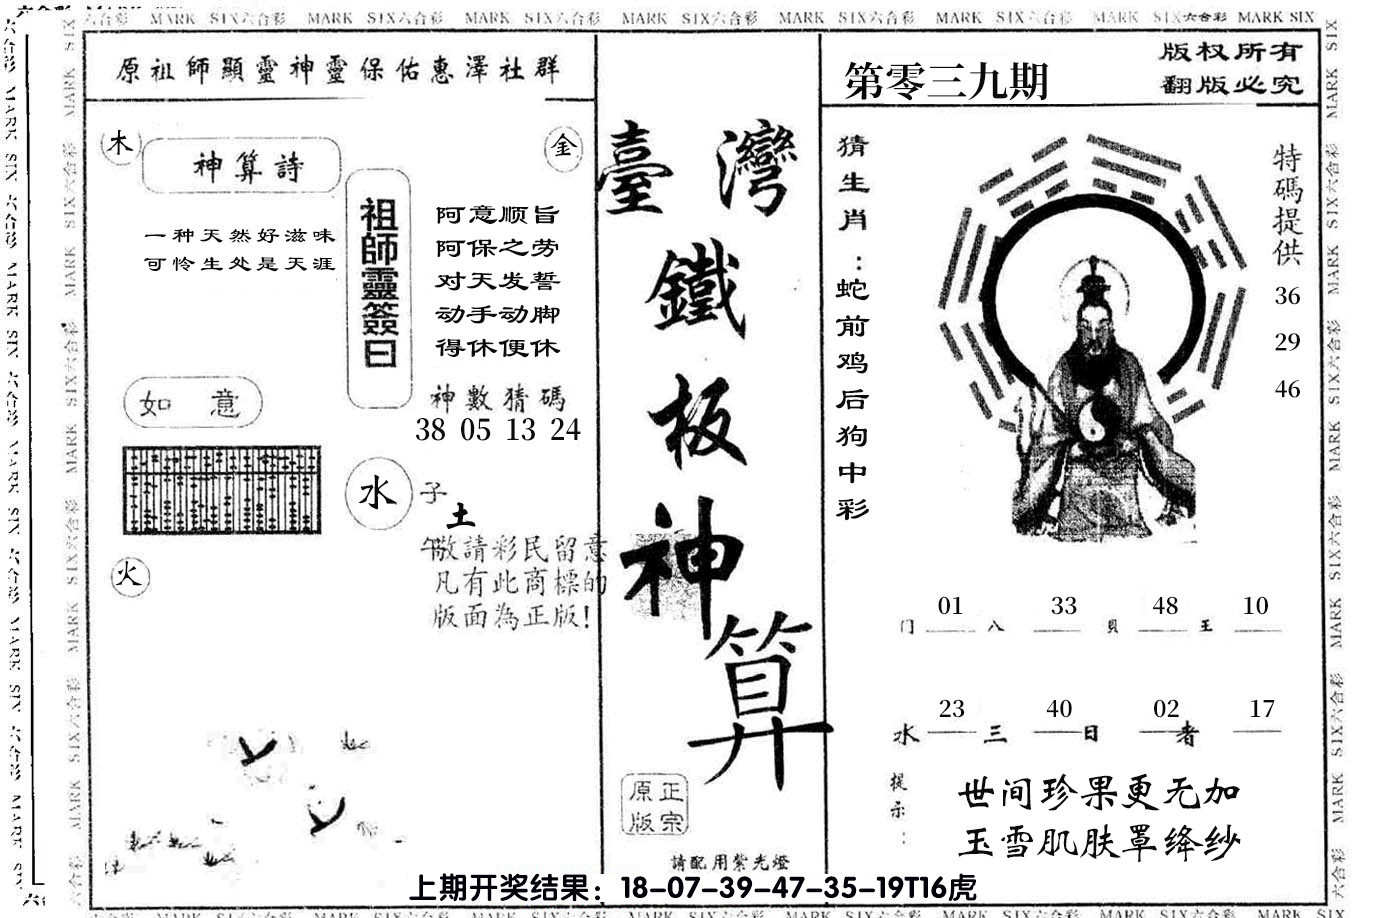 MARK SIX六合彩 MARK SIX六合彩 MARK SIX六合彩 MARK SIX六合彩 MARK SIX六合彩 MARK SIX六合彩 MARK SIX六合彩 MARK SIX
原祖師顯靈神靈保佑惠澤社群
木
金
神算詩
一种天然好滋味
可怜生处是天涯
祖師靈簽曰
阿意顺旨
阿保之劳
对天发誓
动手动脚
得休便休
神數猜碼
38 05 13 24
如意
水
子
土
午
火
敬請彩民留意
凡有此商標的
版面為正版!
臺灣
鐵
板
神
算
正宗
原版
請配用紫光燈
第零三九期
版权所有
翻版必究
猜生肖:蛇前鸡后狗中彩
特碼提供
36
29
46
01 33 48 10
门 八 貝 王
23 40 02 17
水 三 日 者
提示:
世间珍果更无加
玉雪肌肤罩绛纱
上期开奖结果：18-07-39-47-35-19T16虎